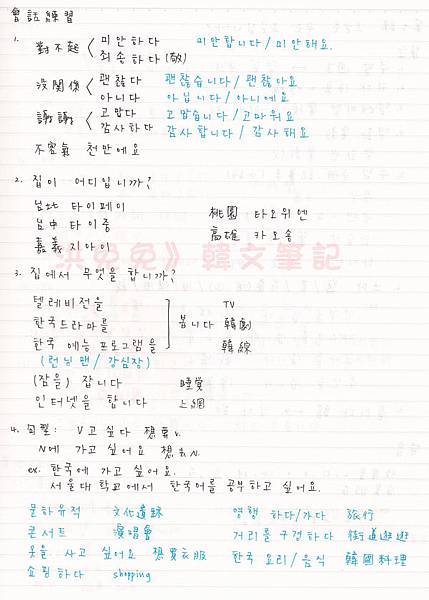 會話練習
1. 對不起 < 미안하다 미안합니다 / 미안해요.
죄송하다 (敬)
沒關係 < 괜찮다 괜찮습니다 / 괜찮아요
아니다 아닙니다 / 아니에요
謝謝 < 고맙다 고맙습니다 / 고마워요
감사하다 감사합니다 / 감사해요
不客氣 천만에요
2. 집이 어디입니까?
台北 타이페이 桃園 타오위엔
台中 타이중 高雄 카오슝
嘉義 지아이
洪兔兔》韓文筆記
3. 집에서 무엇을 합니까?
텔레비전을 TV
한국드라마를 봅니다 韓劇
한국 예능 프로그램을 韓綜
(런닝맨 / 강심장)
(잠을) 잡니다 睡覺
인터넷을 합니다 上網
4. 句型: V고 싶다 想要V.
N에 가고 싶어요 想去N.
ex. 한국에 가고 싶어요.
서울대학교에서 한국어를 공부하고 싶어요.
문화유적 文化遺跡 여행 하다/가다 旅行
콘서트 演唱會 거리를 구경하다 街道逛逛
옷을 사고 싶어요 想買衣服 한국 요리/음식 韓國料理
쇼핑하다 shopping